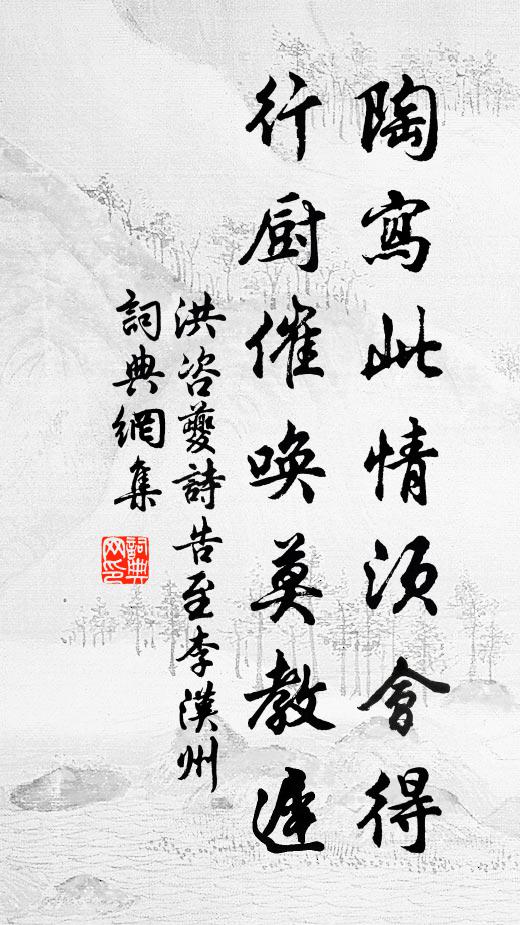 陶寫此情須會得
行厨催喚莫教遲
洪咨夔詩告至李漢州
詞典網集
詞典网印